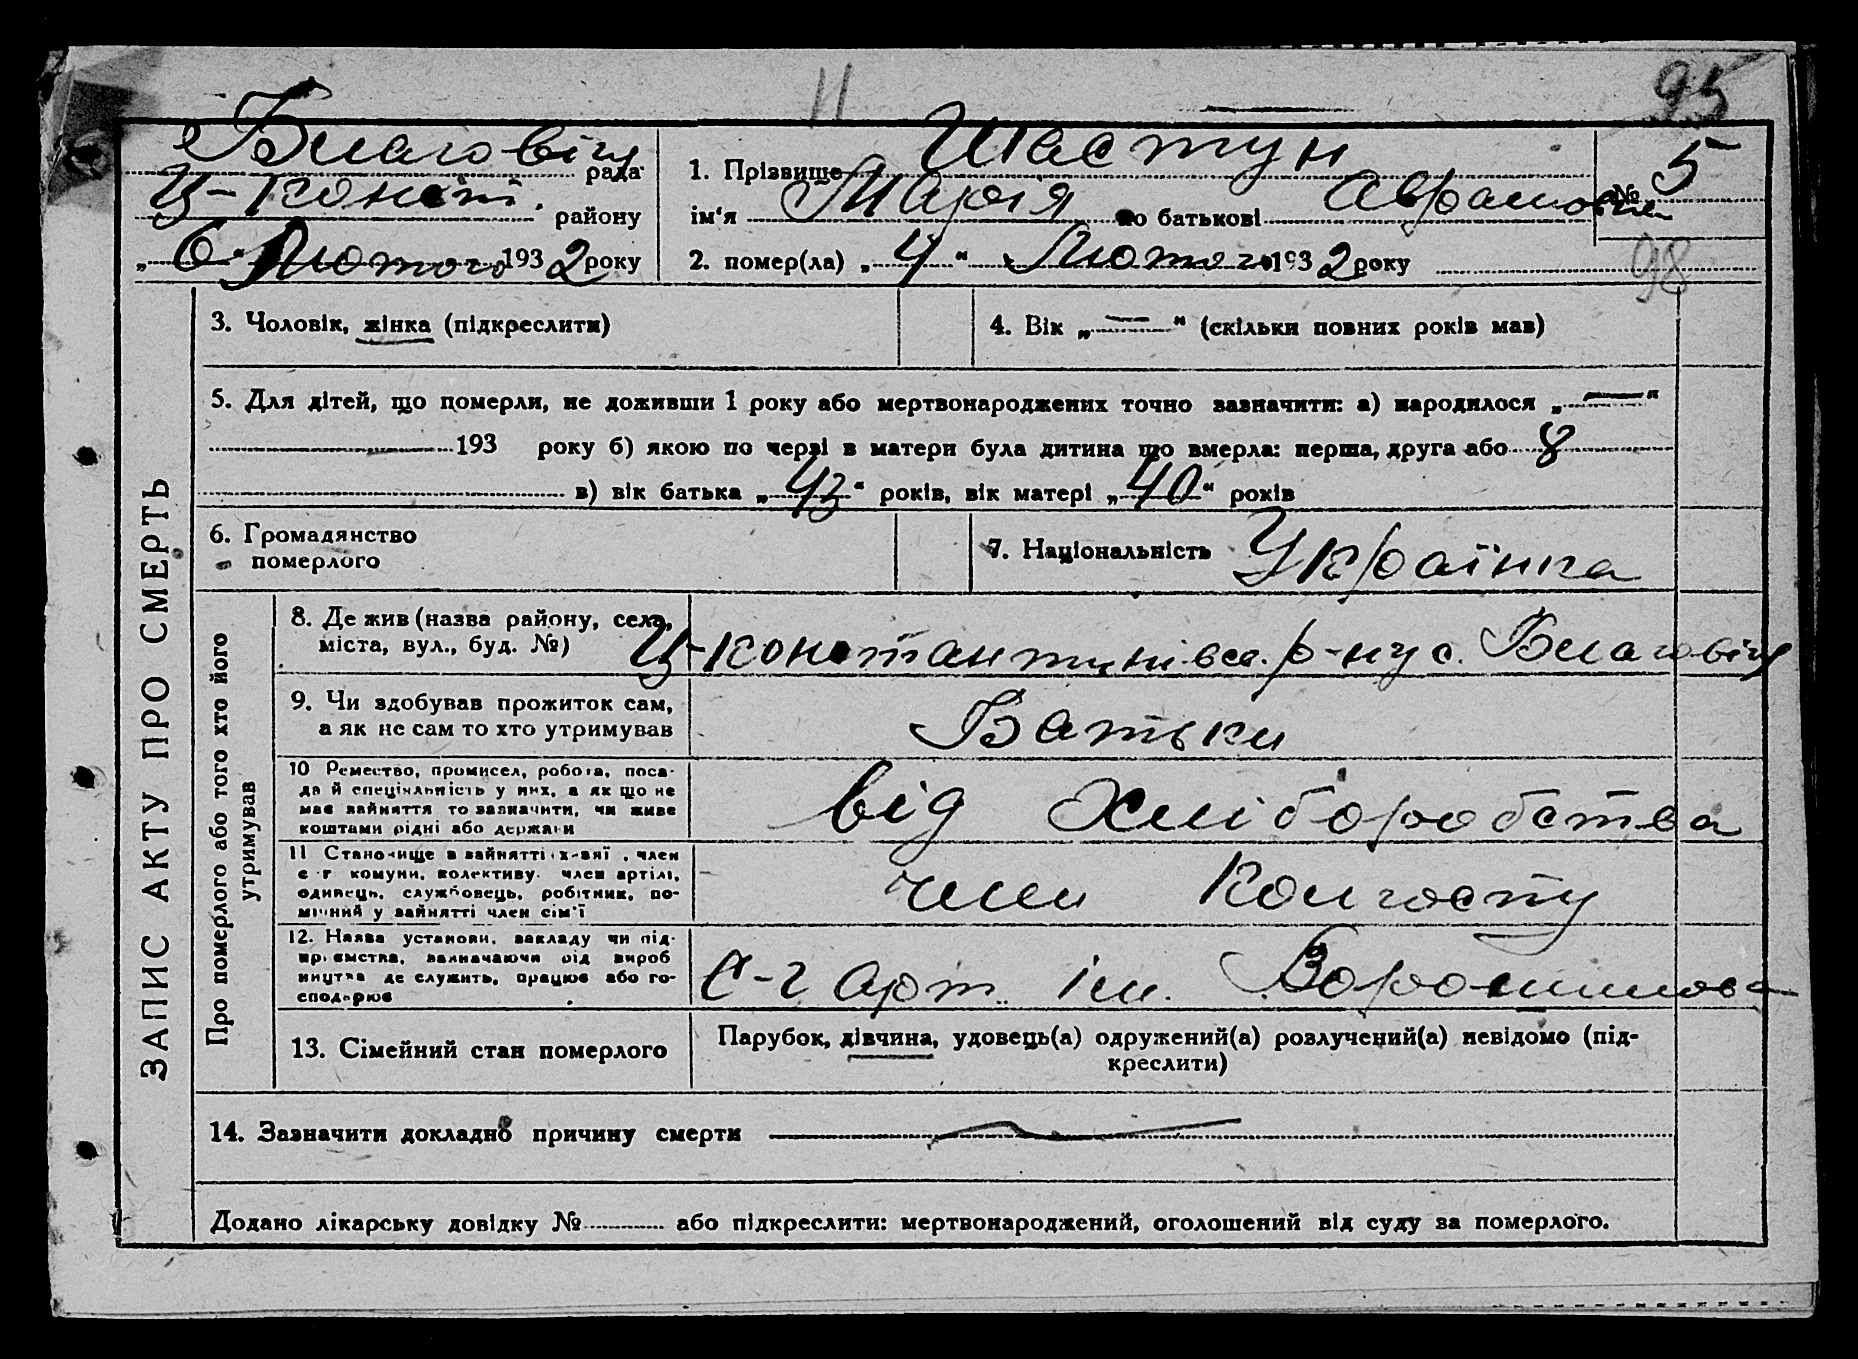 11
95
Благовіщ рада
Ц-Конст. району
„6" Лютого 1932 року
1. Прізвище Шастун
ім'я Марія по батькові Аврамовна
№ 5
2. помер(ла) „4" Лютого 1932 року
98
3. Чоловік, жінка (підкреслити)
4. Вік „—" (скільки повних років мав)
5. Для дітей, що померли, не доживши 1 року або мертвонароджених точно зазначити: а) народилося „—"
193 року б) якою по черзі в матери була дитина що вмерла: перша, друга або 8
в) вік батька „43" років, вік матері „40" років
6. Громадянство
померлого
7. Національність Українка
ЗАПИС АКТУ ПРО СМЕРТЬ
Про померлого або того хто його
утримував
8. Де жив (назва району, села,
міста, вул., буд. №)
Ц-константинівсв. р-ну с. Благовіщ
9. Чи здобував прожиток сам,
а як не сам то хто утримував
Батьки
10 Ремество, промисел, робота, поса-
да й спеціяльність у них, а як що не
має зайняття то зазначити, чи живе
коштами рідні або держави
від хліборобства
11 Становище в зайнятті: х-вяї, член
с-г комуни, колективу, член артілі,
одинець, службовець, робітник, по-
мічний у зайнятті член сім'ї
член колгоспу
12. Назва установи, закладу чи під-
приємства, зазначаючи рід вироб
ництва де служить, працює або го-
сподарює
С-г арт. ім. Ворошилова
13. Сімейний стан померлого
Парубок, дівчина, удовець(а) одружений(а) розлучений(а) невідомо (під-
креслити)
14. Зазначити докладно причину смерти —
Додано лікарську довідку № або підкреслити: мертвонароджений, оголошений від суду за померлого.